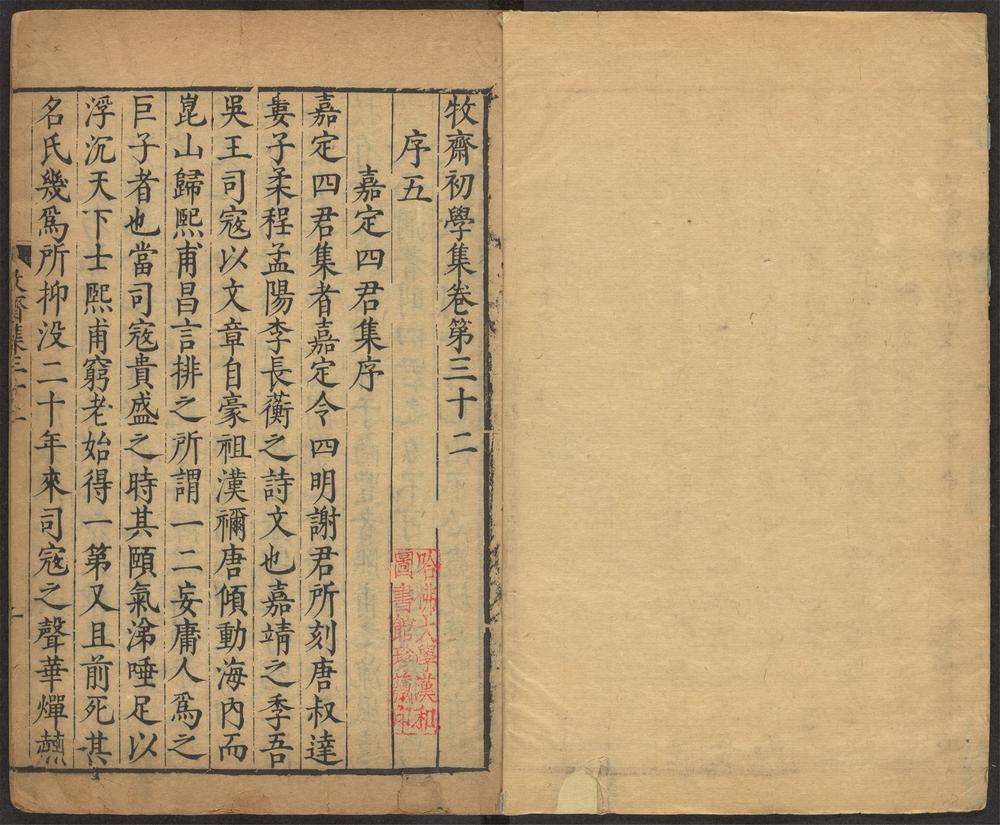 牧齋初學集卷第三十二
序五
嘉定四君集序
嘉定四君集者嘉定令四明謝君所刻唐叔達
婁子柔程孟陽李長蘅之詩文也嘉靖之季吾
吳王司寇以文章自豪祖漢禰唐傾動海內而
崑山歸熙甫昌言排之所謂一二妄庸人爲之
巨子者也當司寇貴盛之時其頤氣涕唾足以
浮沉天下士熙甫窮老始得一第又且前死其
名氏幾爲所抑没二十年來司寇之聲華燀赫
牧齋集三十二
一
哈佛大學漢和
圖書館珍藏印